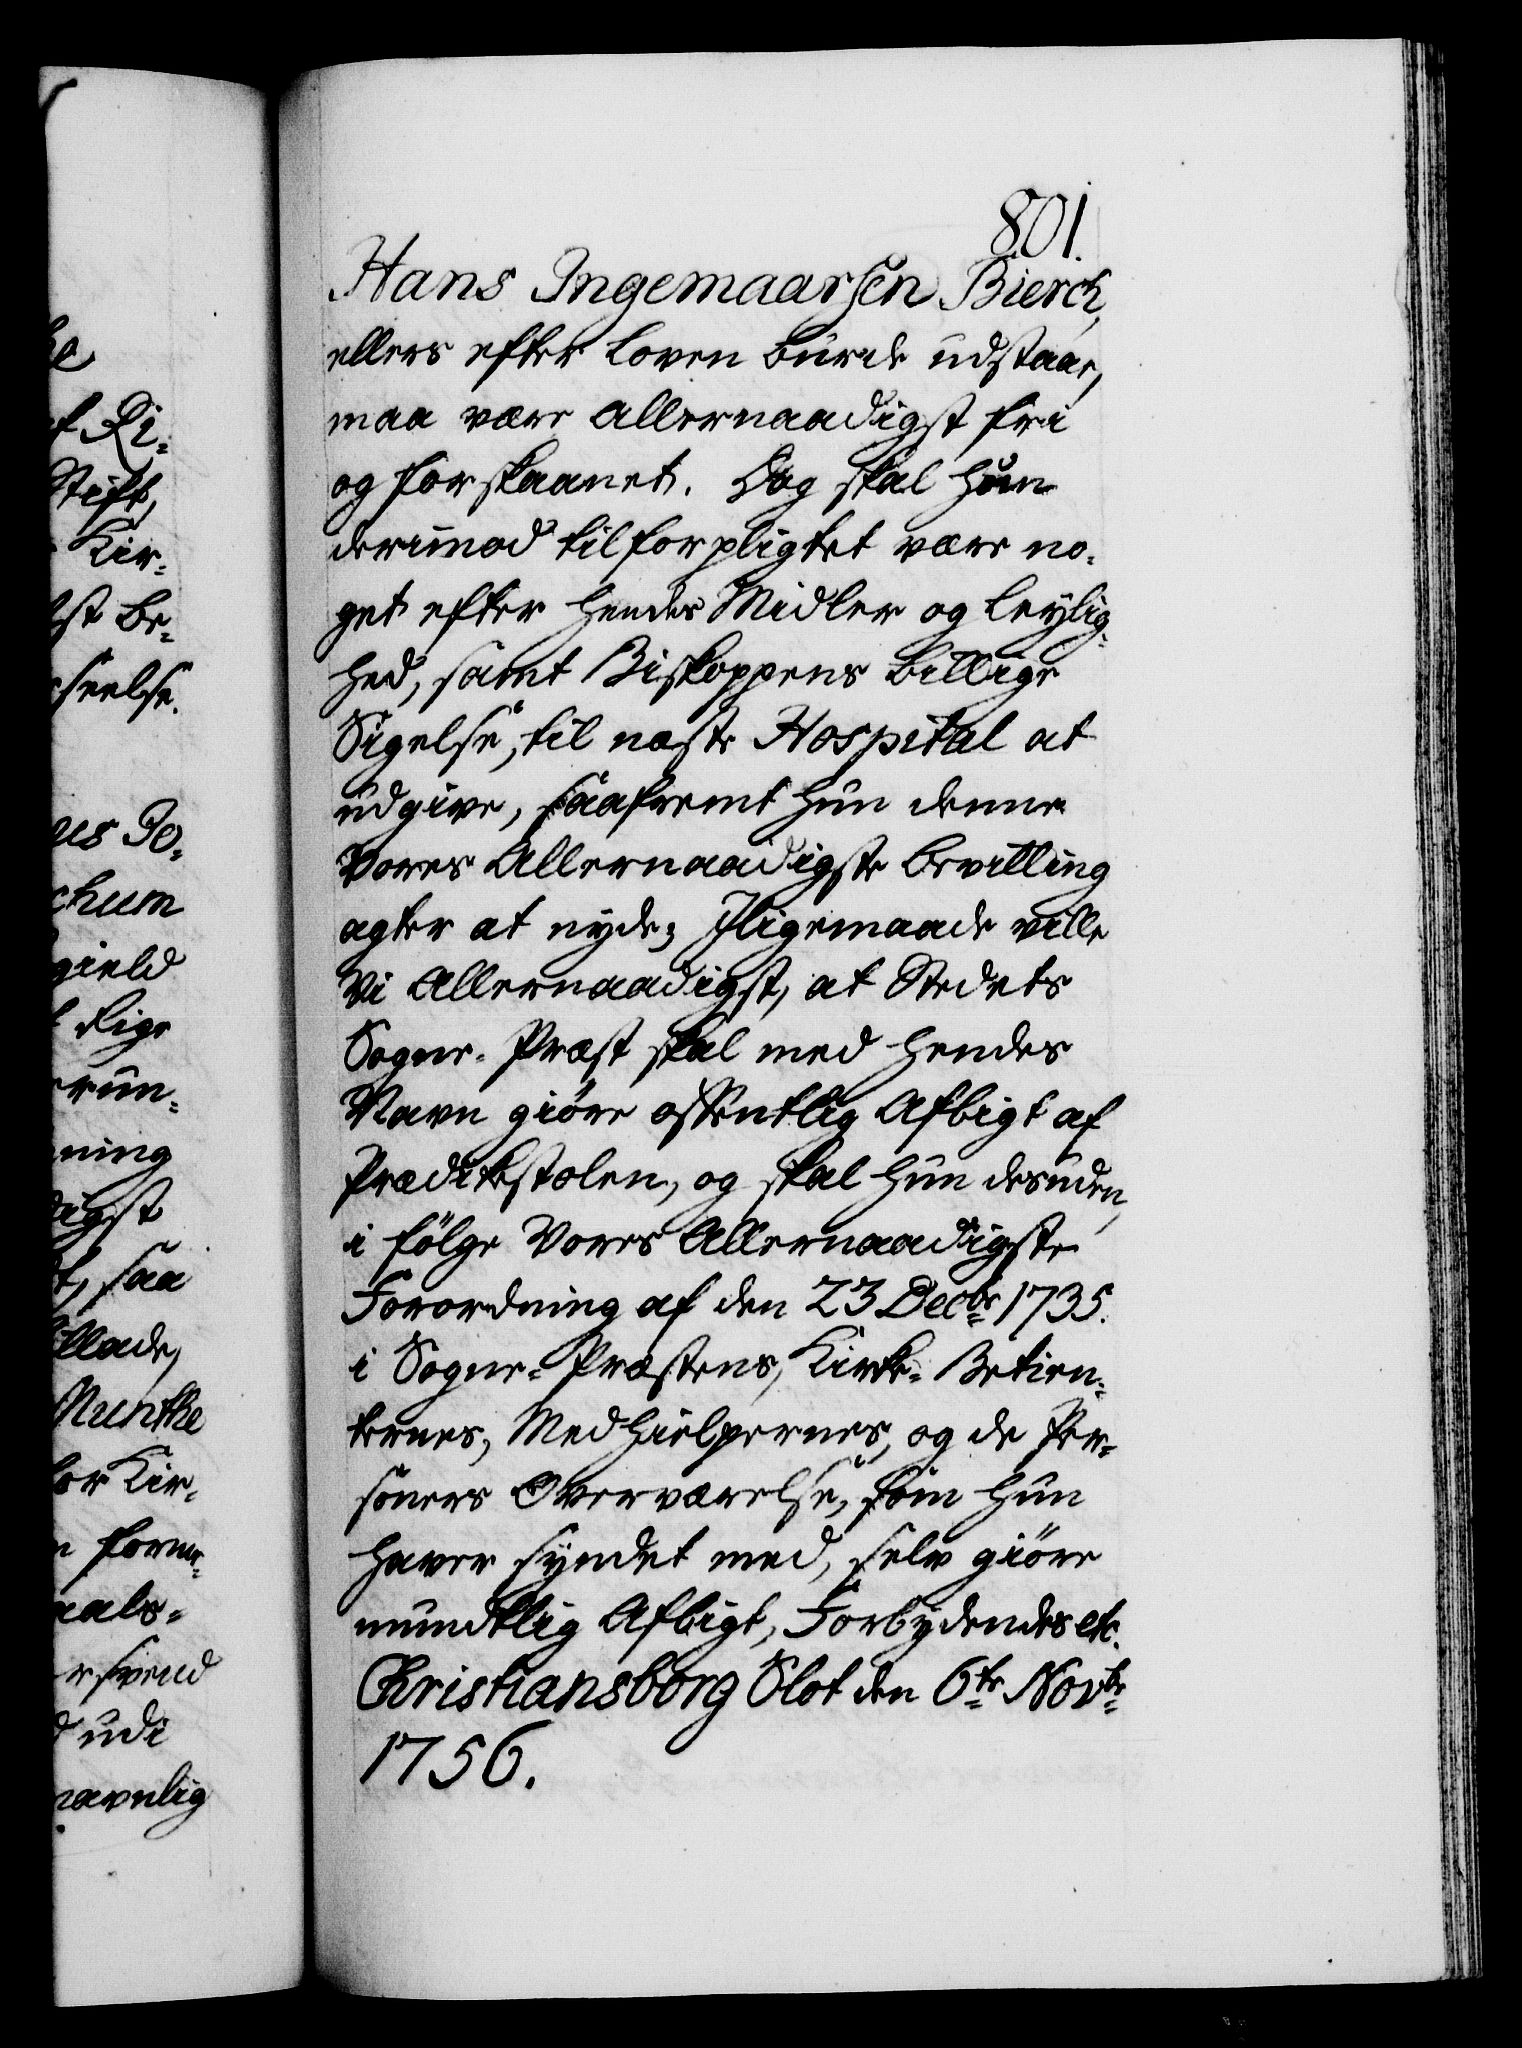 801.
Hans Ingemaarsen Bierck,
ellers efter Loven burde udstaae,
maa være allernaadigst fri
og forskaanet. Dog skal hun
derimod tilforpligtet være no-
get efter hendes Midler og Leylig-
hed, samt Biskoppens billige
Sigelse, til næste Hospital at
udgive, saafremt hun denne
Vores Allernaadigste Bevilling
agter at nyde; Jligemaade ville
Vi Allernaadigst, at Stedets
Sogne-Præst skal med hendes
Navn giøre offentlig Afbigt af
Prædikestolen, og skal hun desuden,
i følge Vores Allernaadigste
Forordning af den 23 Decbr 1735.
i Sogne-Præstens, Kirke-Betien-
ternes, Medhielpernes, og de Per-
soners Overværelse, som hun
haver syndet med, selv giøre
mundtlig Afbigt, Forbydendes etc.
Christiansborg Slot den 6te Novbr
1756.
f Ri-
Stift,
Kir-
st Be-
seelse.
es Jo-
chum
gield
Lige
run-
ning
digst
t, saa
illade,
Munthe
for Kir-
n forme-
aals-
r svend
d udi
navnlig